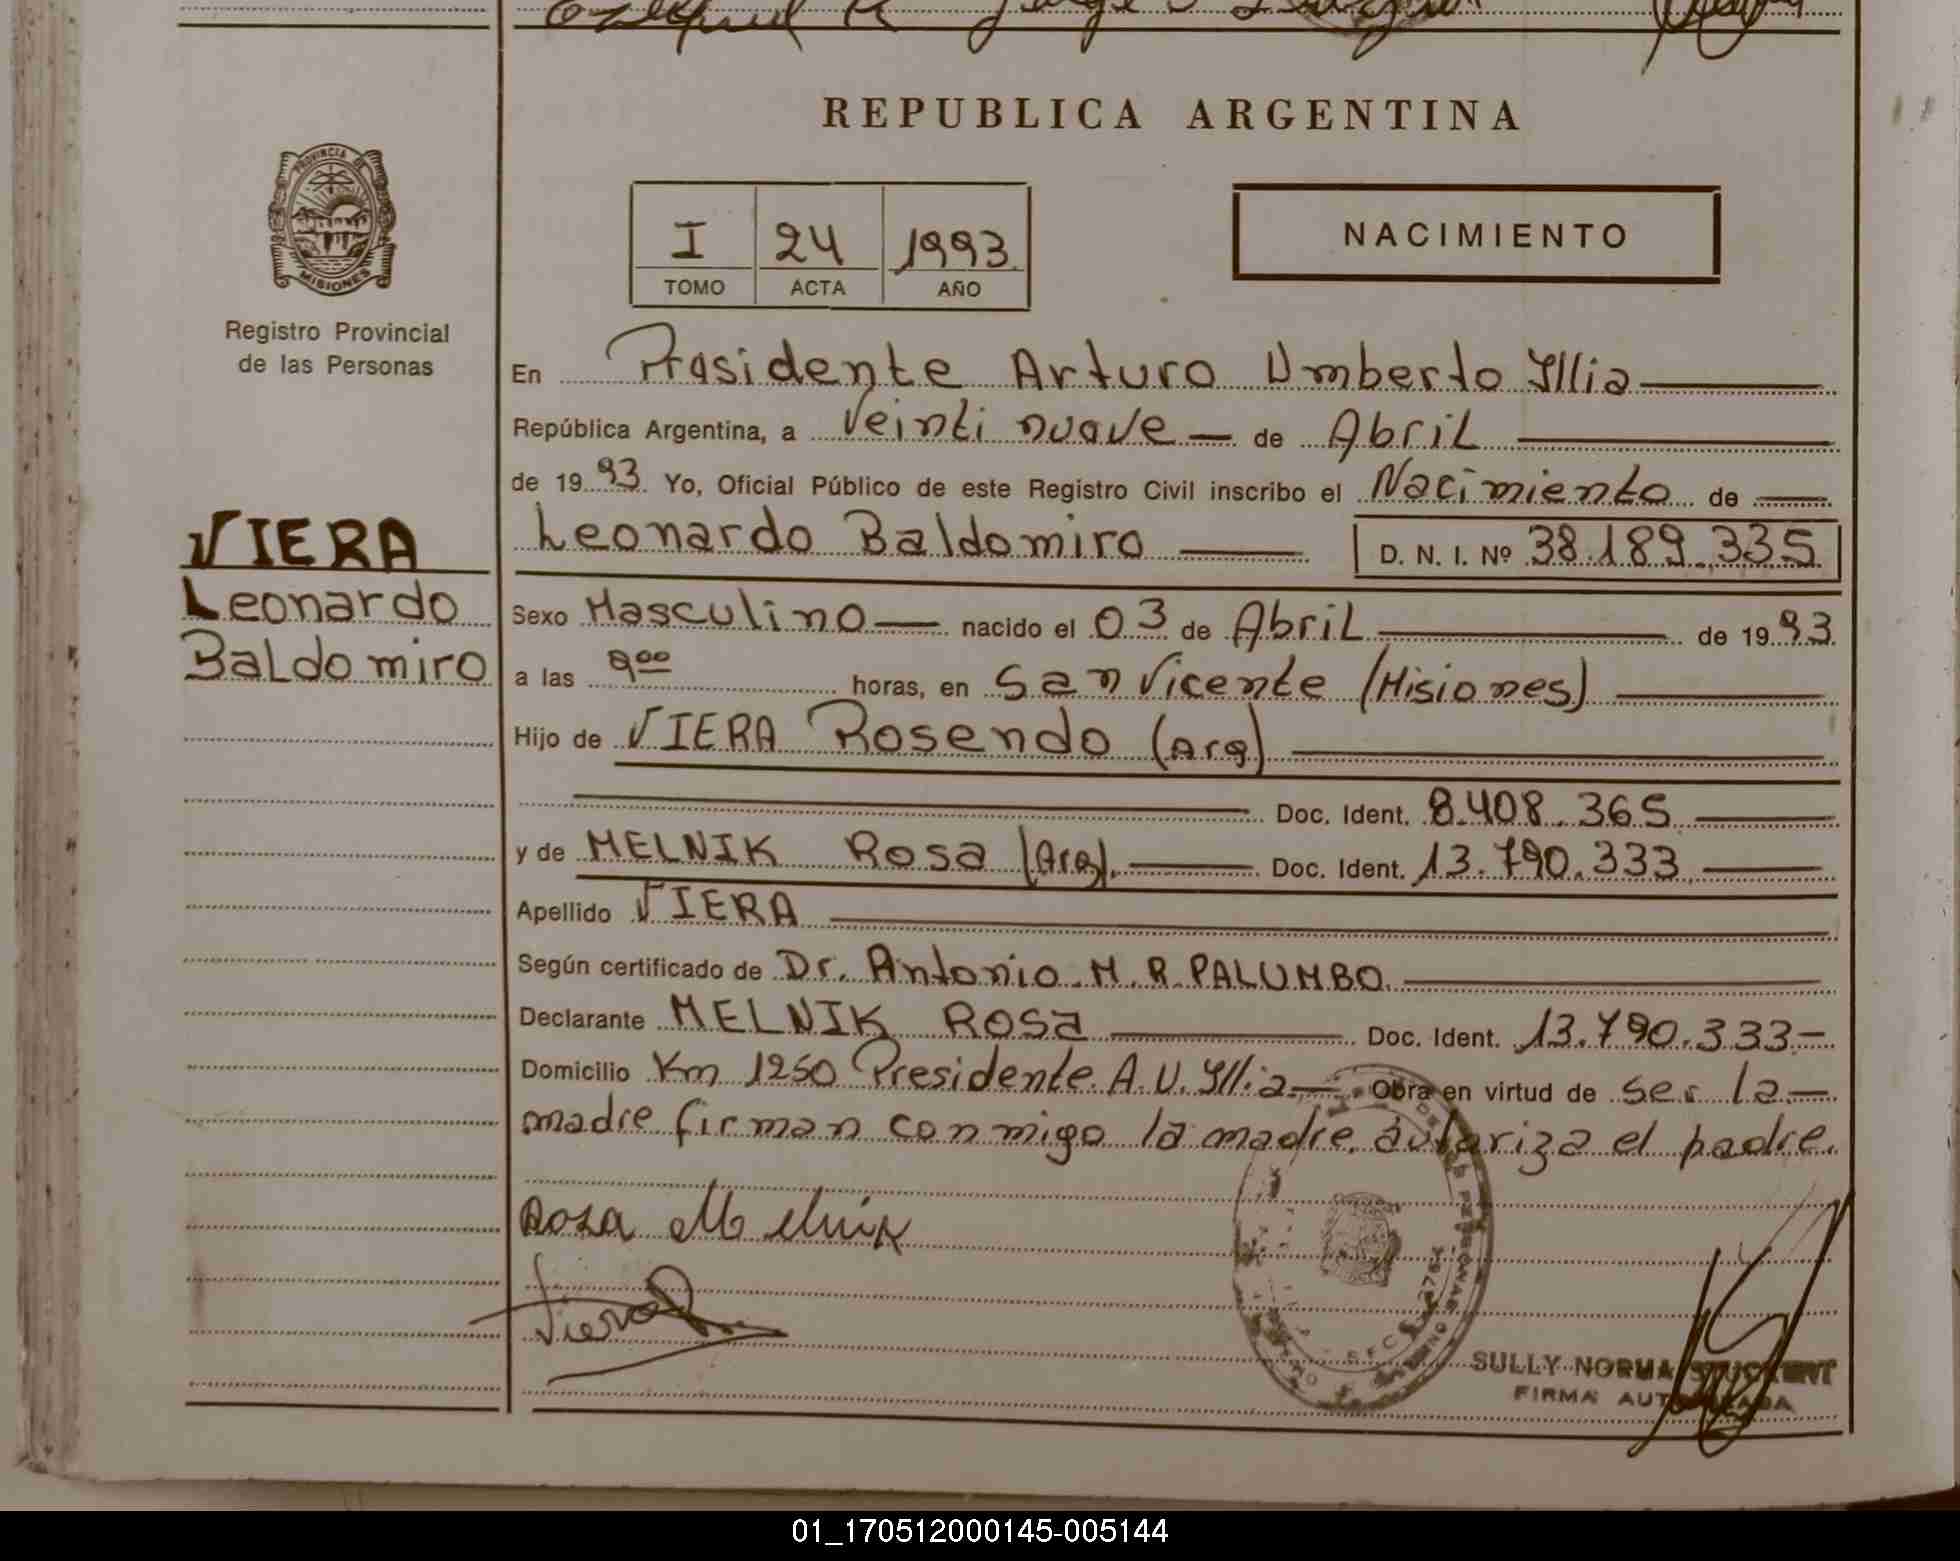 REPUBLICA ARGENTINA
PROVINCIA DE
MISIONES
Registro Provincial
de las Personas
I 24 1993
TOMO ACTA AÑO
NACIMIENTO
En Presidente Arturo Umberto Yllia
República Argentina, a Veinti nueve de Abril
de 1993 Yo, Oficial Público de este Registro Civil inscribo el Nacimiento de
Leonardo Baldomiro D. N. I. Nº 38.189.335
VIERA
Leonardo
Baldomiro
Sexo Masculino nacido el 03 de Abril de 1993
a las 900 horas, en San Vicente (Misiones)
Hijo de VIERA Rosendo (Arg)
Doc. Ident. 8.408.365
y de MELNIK Rosa (Arg). Doc. Ident. 13.790.333
Apellido VIERA
Según certificado de Dr. Antonio M. R. PALUMBO
Declarante MELNIK Rosa Doc. Ident. 13.790.333
Domicilio Km 1250 Presidente A. U. Yllia Obra en virtud de ser la
madre firman conmigo la madre. autoriza el padre.
Rosa Melnik
Viera
SULLY NORMA
FIRMA AUTORIZADA
01_170512000145-005144